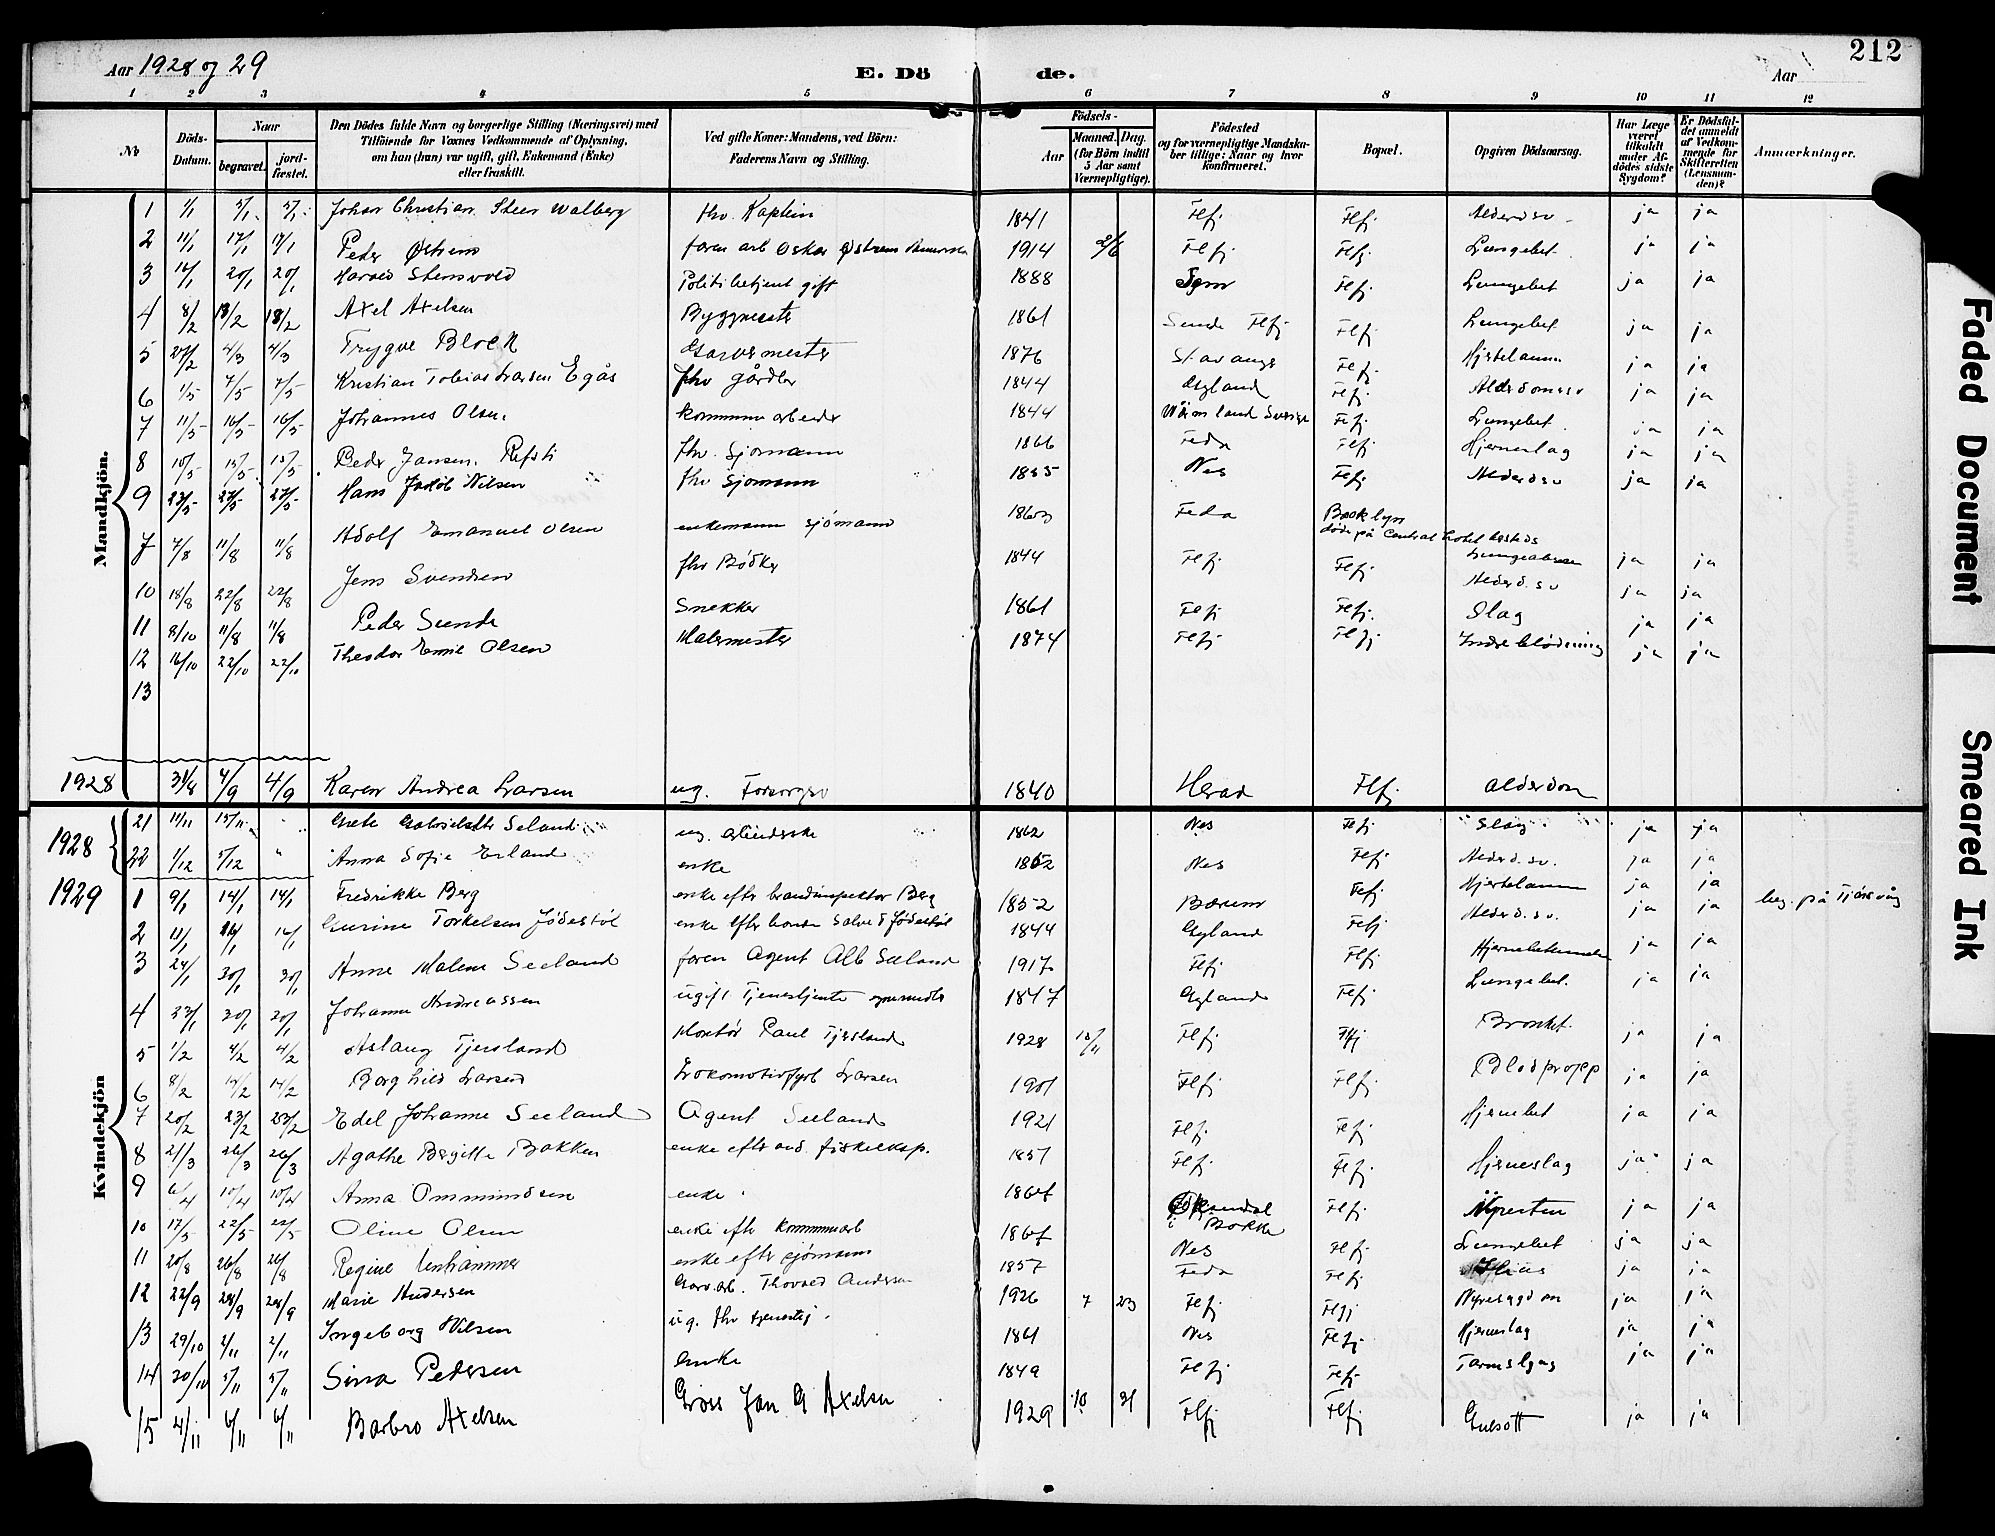 212
Aar 1928 og 29
E. Dö de.
Aar
1 2 3 4 5 6 7 8 9 10 11 12
No
Döds-Datum.
Naar
begravet.
jord-fæstet.
Den Dödes fulde Navn og borgerlige Stilling (Næringsvei) med
Tilföiende for Voxnes Vedkommende af Oplysning,
om han (hun) var ugift, gift, Enkemand (Enke)
eller fraskilt.
Ved gifte Koner: Mandens, ved Börn:
Faderens Navn og Stilling.
Födsels-
Aar Maaned. Dag.
(for Börn indtil
5 Aar samt
Værnepligtige).
Födested
og for værnepligtige Mandska-
ber tillige: Naar og hvor
konfirmeret.
Bopæl.
Opgiven Dödsaarsag.
Har Læge
været
tilkaldt
under Af-
dödes sidste
Sygdom?
Er Dödsfal-
det anmeldt
af Vedkom-
mende for
Skifteretten
(Lensman-
den)?
Anmærkninger.
Mandkjön.
1 1/1 5/1 5/1 Johan Christian Steen Walberg fhv. Kaptein 1841 Flfj. Flfj. ja ja
2 11/1 17/1 17/1 Peder Østrem faren arb Oskar Østrem 1914 2/6 Flfj. Flfj. Lungebet. ja ja
3 14/1 20/1 20/1 Harald Stensvold Politibetjent gift 1888 Flfj. Lungebet ja ja
4 8/2 13/2 13/2 Axel Axelsen Byggmester 1861 Sunde Flfj. Flfj. Lungebet. ja ja
5 27/2 4/3 4/3 Trygve Block Garvermester 1876 Stavanger Flfj. Hjertelamm. ja ja
6 1/5 7/5 7/5 Kristian Tobias Larsen Egås fhv gårdbr 1844 Gyland Flfj. ja ja
7 11/5 16/5 16/5 Johannes Olsen kommunearbeider 1844 Värmland Sverige Flfj. Lungebet. ja ja
8 10/5 15/5 15/5 Peder Jansen Refsti fhv. Sjømann 1866 Feda Flfj. Hjerneslag ja ja
9 23/5 27/5 27/5 Hans Jakob Nilsen fhv Sjømann 1855 Nes Flfj. ja ja
7 7/8 11/8 11/8 Adolf Emanuel Olsen enkemann sjømann Feda Brooklyn
døde på Central hotel
ja ja
10 18/8 22/8 22/8 Jens Svendsen fhv Bødker 1844 Flfj. Flfj. ja ja
11 8/10 11/8 11/8 Peder Sunde Snekker 1861 Flfj. Flfj. Slag ja ja
12 16/10 22/10 22/10 Theodor Emil Olsen Malermester 1874 Flfj. Flfj. Indre blødning ja ja
13
1928 31/8 4/9 4/9 Karen Andrea Larsen ug. Forsorgsv 1840 Herad Flfj. alderdom
Kvindekjön
1928
21 11/11 15/11 " Grete Gabrielette Seland ug. 1862 Nes Flfj. Slag ja ja
22 1/12 5/12 " Anna Sofie Erland enke 1852 Nes Flfj. ja ja
1929
1 9/1 14/1 14/1 Fredrikke Berg enke efter brandinspektør Berg 1852 Bærum Flfj. Hjertelamm ja ja beg. på Tjørsvåg
2 11/1 16/1 16/1 Gurine Torkelsen Jødestøl 1844 Gyland Flfj. ja ja
3 24/1 30/1 30/1 Anne Malene Seeland faren Agent Alb Seeland 1917 Flfj. Flfj. ja ja
4 23/1 20/1 20/1 Johanne Andreassen ugift Tjenestjente 1847 Gyland Flfj. Lungebet. ja ja
5 1/2 4/2 4/2 Aslaug Tjersland Montør Paul Tjersland 1928 15/11 Flfj. Flfj. Bronkit. ja ja
6 8/2 14/2 14/2 Borghild Larsen Lokomotivfyrb Larsen 1901 Flfj. Flfj. Blodpropp ja ja
7 20/2 23/2 23/2 Edel Johanne Seeland Agent Seeland 1921 Flfj. Flfj. Hjernebet ja ja
8 21/3 26/3 26/3 Agathe Birgitte Bakken 1857 Flfj. Flfj. Hjerneslag ja ja
9 6/4 10/4 10/4 Anna Ommundsen enke Flfj. ja ja
10 17/5 22/5 22/5 Oline Olsen enke efter kommunearb Nes Flfj. Lungebet ja ja
11 20/8 26/8 26/8 Regine Unhammer enke efter sjømann 1857 Feda Flfj. ja ja
12 22/9 28/9 28/9 Marie Andersen Garv.arb. Thorvald Andersen 1926 7 23 Flfj. Flfj. ja ja
13 29/10 2/11 2/11 Ingeborg Nilsen ug. fhv 1861 Nes Flfj. Hjerneslag ja ja
14 30/10 5/11 5/11 Sina Pedersen enke 1849 Flfj. Flfj. ja ja
15 4/11 6/11 6/11 Barbro Axelsen Gross Jon G Axelsen 1929 10 31 Flfj. Flfj. Gulsott ja ja
Faded Document
Smeared Ink